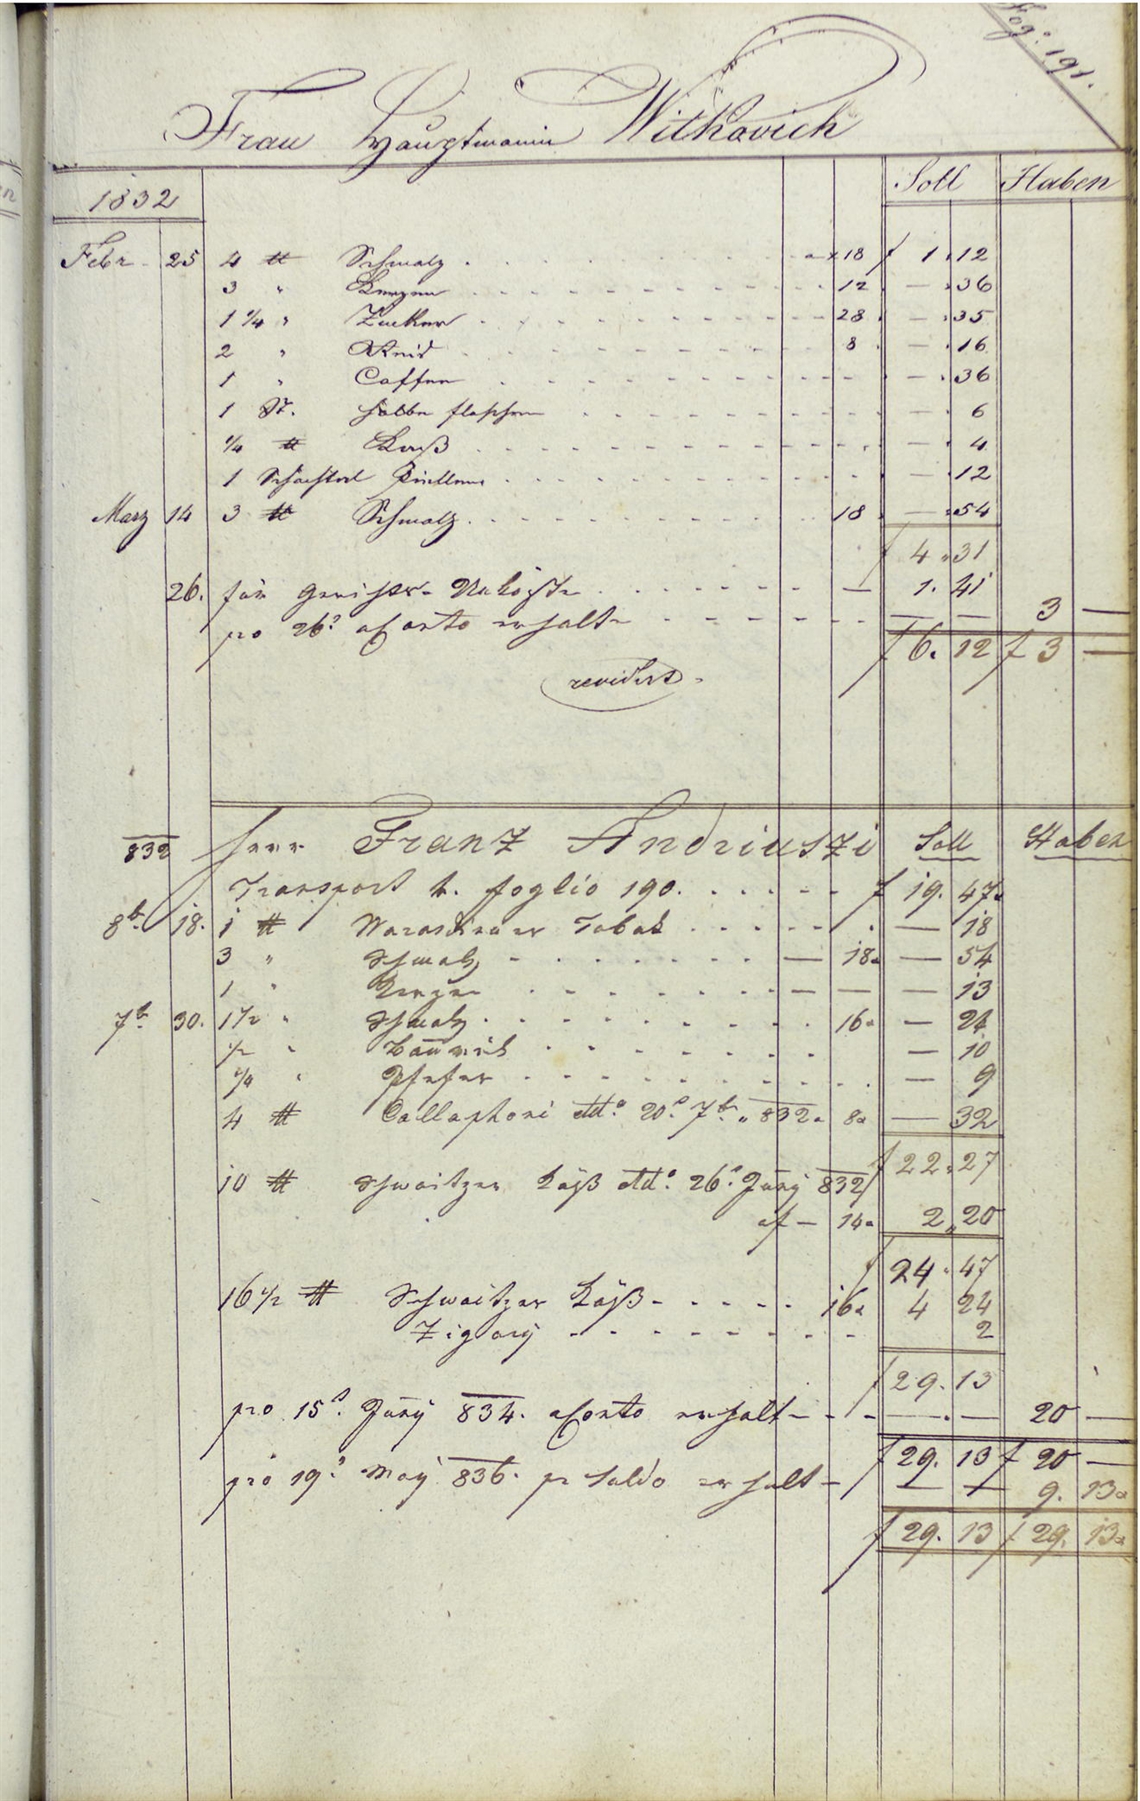 Fog: 191.
Frau Hauptmanin Withovich
1832 Soll Haben
Febr 25 4 ℔ Schmalz . . . a x 18 f 1 . 12
3 " Kerzen . . . 12 — . 36
1 1/4 " Zucker . . . 28 — . 35
2 " Reis . . . 8 — . 16
1 " Caffee . . . — . 36
1 St. halbe flaschen . . . — 6
1/4 ℔ . . . — . 4
1 Schachtel . . . — . 12
Marz 14 3 ℔ Schmalz . . . 18 — . 54
f 4 . 31
26. für . . . — 1 . 41
pro 26? aConto erhalten . . . — — 3 —
f 6 . 12 f 3 —
revidirt
832 Herr Franz Andriuszi Soll Haben
Transport v. foglio 190. . . . f 19. 47.
8b. 18. 1 ℔ Warasdiner Tabak . . . — 18
3 " Schmalz . . . — 18. — 54
1 " Kerzen . . . — — — 13
7b. 30. 1 1/2 " Schmalz . . . 16. — 24
1/2 " . . . — 10
1/4 " Pfefer . . . — 9
4 ℔ Callaphoni dtto. 20? 7br. 832. 8. — 32
f 22 . 27
10 ℔ Schwaitzer Käß dtto. 26? Juny 832
af — 14. 2 „ 20
f 24 . 47
16 1/2 ℔ Schwaitzer Käß . . . 16. 4 24
Zigory . . . 2
f 29 . 13
pro 15? Juny 834. aConto erhalten — — . — 20 —
f 29. 13 f 20 —
pro 19? May 836. pr Saldo erhalten — — — 9. 13.
f 29. 13 f 29. 13.